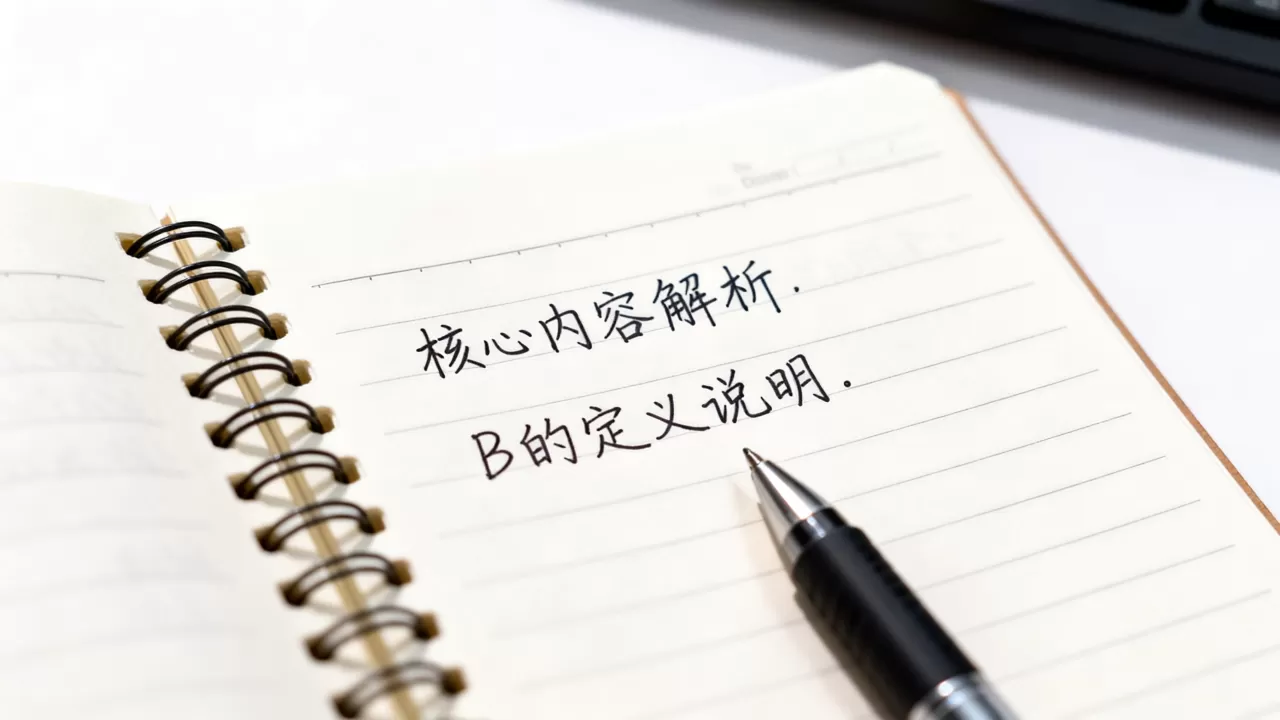 核心内容解析.
B的定义说明.